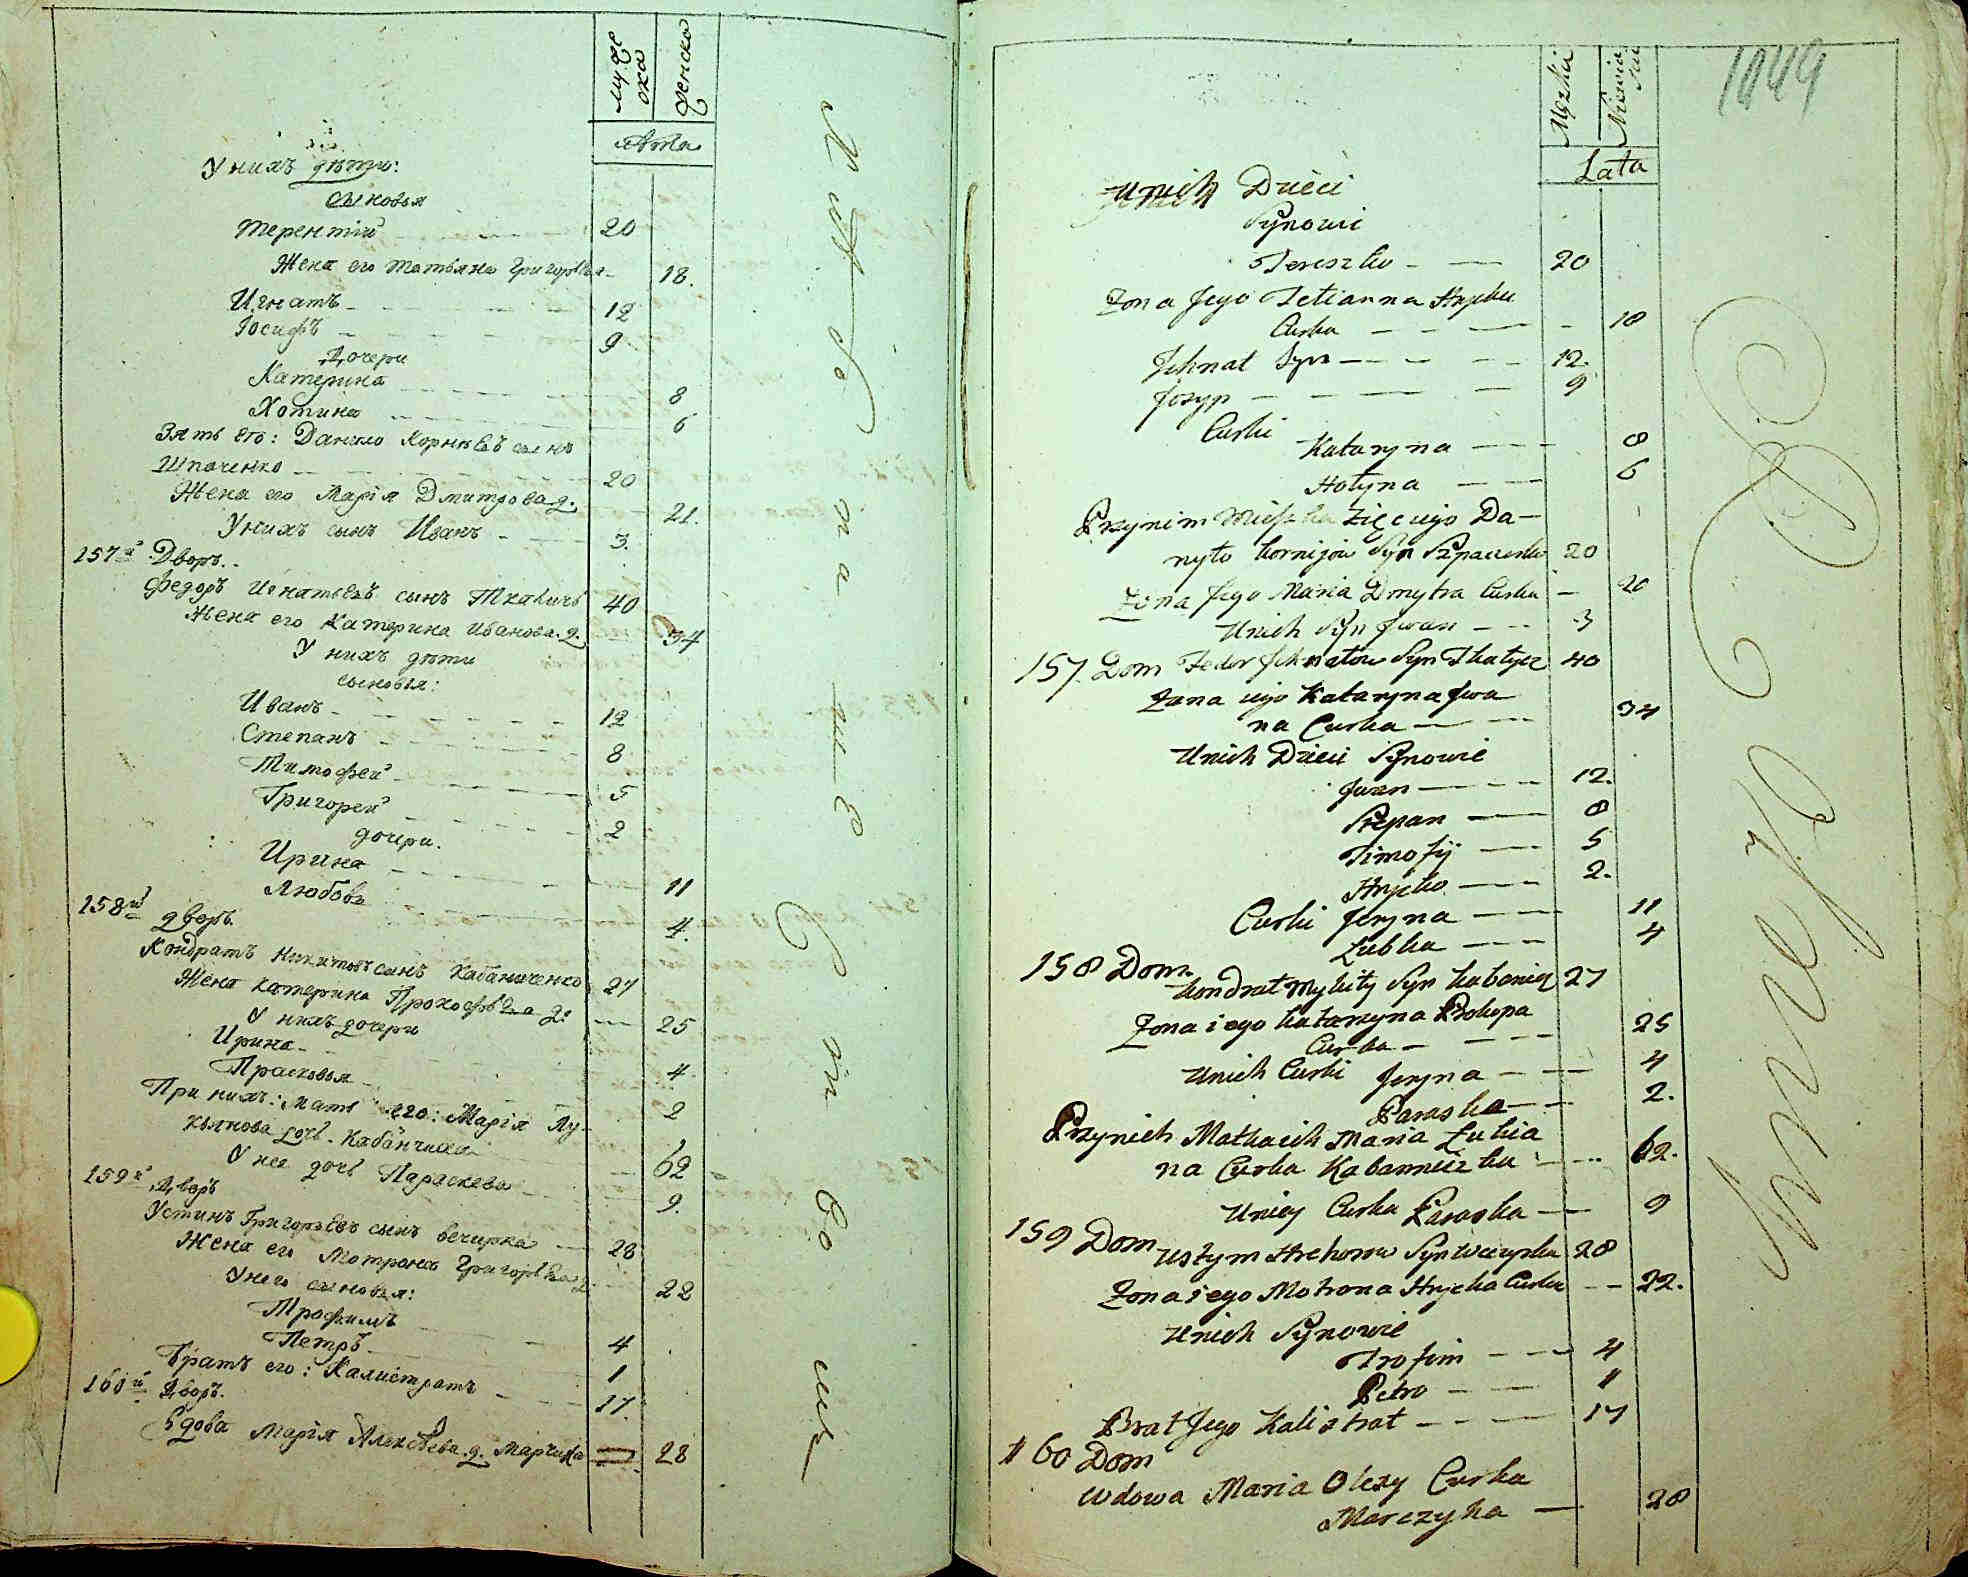 мужеска
женска
Лѣта
У нихъ дѣти:
сыновья
Терентій 20
Жена его Татьяна Григорьева 18.
Игнатъ 12
Іосифъ 9
Дочери
Катерина 8
Хотина 6
Зять его: Данило Корнѣевъ сынъ
Шпаченко 20
Жена его Марія Дмитрова д. 21.
У нихъ сынъ Иванъ 3.
157й Дворъ.
Федоръ Игнатьевъ сынъ Ткачичъ 40
Жена его Катерина Иванова д. 34
У нихъ дѣти
сыновья:
Иванъ 12
Степанъ 8
Тимофей 5
Григорей 2
дочери.
Ирина 11
Любовь 4.
158й дворъ.
Кондратъ Никитовъ сынъ Кабанченко 27
Жена Катерина Прокофьева д: 25
У нихъ дочери
Ирина 4
Прасковья 2
При нихъ: мать его: Марія Лу-
кьянова дочь. Кабанчиха 62
У нее дочь Параскева 9.
159й Дворъ
Устинъ Григорьевъ сынъ Вечирка 28
Жена его Мотрона Григорьева д. 22
У него сыновья:
Трофимъ 4
Петръ 1
Братъ его: Калистратъ 17
160й Дворъ.
Вдова Марія Алексѣева д. Марчиха 28
1049
Męzka
Lata
Unich Dzieci
Synowie
Tereszko 20
Zona Jego Tetianna Hryhu
Curka 18
Jehnat Syn 12.
Jozyp 9
Curki
Kataryna 8
Hotyna 6
Przynim Zięc iego Da-
nyło Kornijow Syn Szpaczenko 20
Zona Jego Maria Dmytra Curka 20
Unich Syn Jwan 3
157. Dom Fedor Jehnatow Syn Tkatycz 40
Zona iego Kataryna Jwa
na Curka 34
Unich Dzieci Synowie
Jwan 12.
Stepan 8
Timofij 5
Hrycko 2.
Curki Jeryna 11
Lubka 4
158 Dom
Kondrat Mykity Syn Kabanicz 27
Zona iego Katarzyna Prokopa
Curka 25
Unich Curki Jeryna 4
Paraska 2.
Przynich Matka ich Maria Łukia
na Curka Kabanniczka 62.
Uniey Curka Paraska 9
159 Dom
Ustym Hrehorow Syn Weczyrka 28
Zona iego Motrona Hrycka Curka 22.
Unich Synowie
Trofim 4
Petro 1
Brat Jego Kalistrat 17
160 Dom
Wdowa Maria Olexy Curka
Marczyha 28